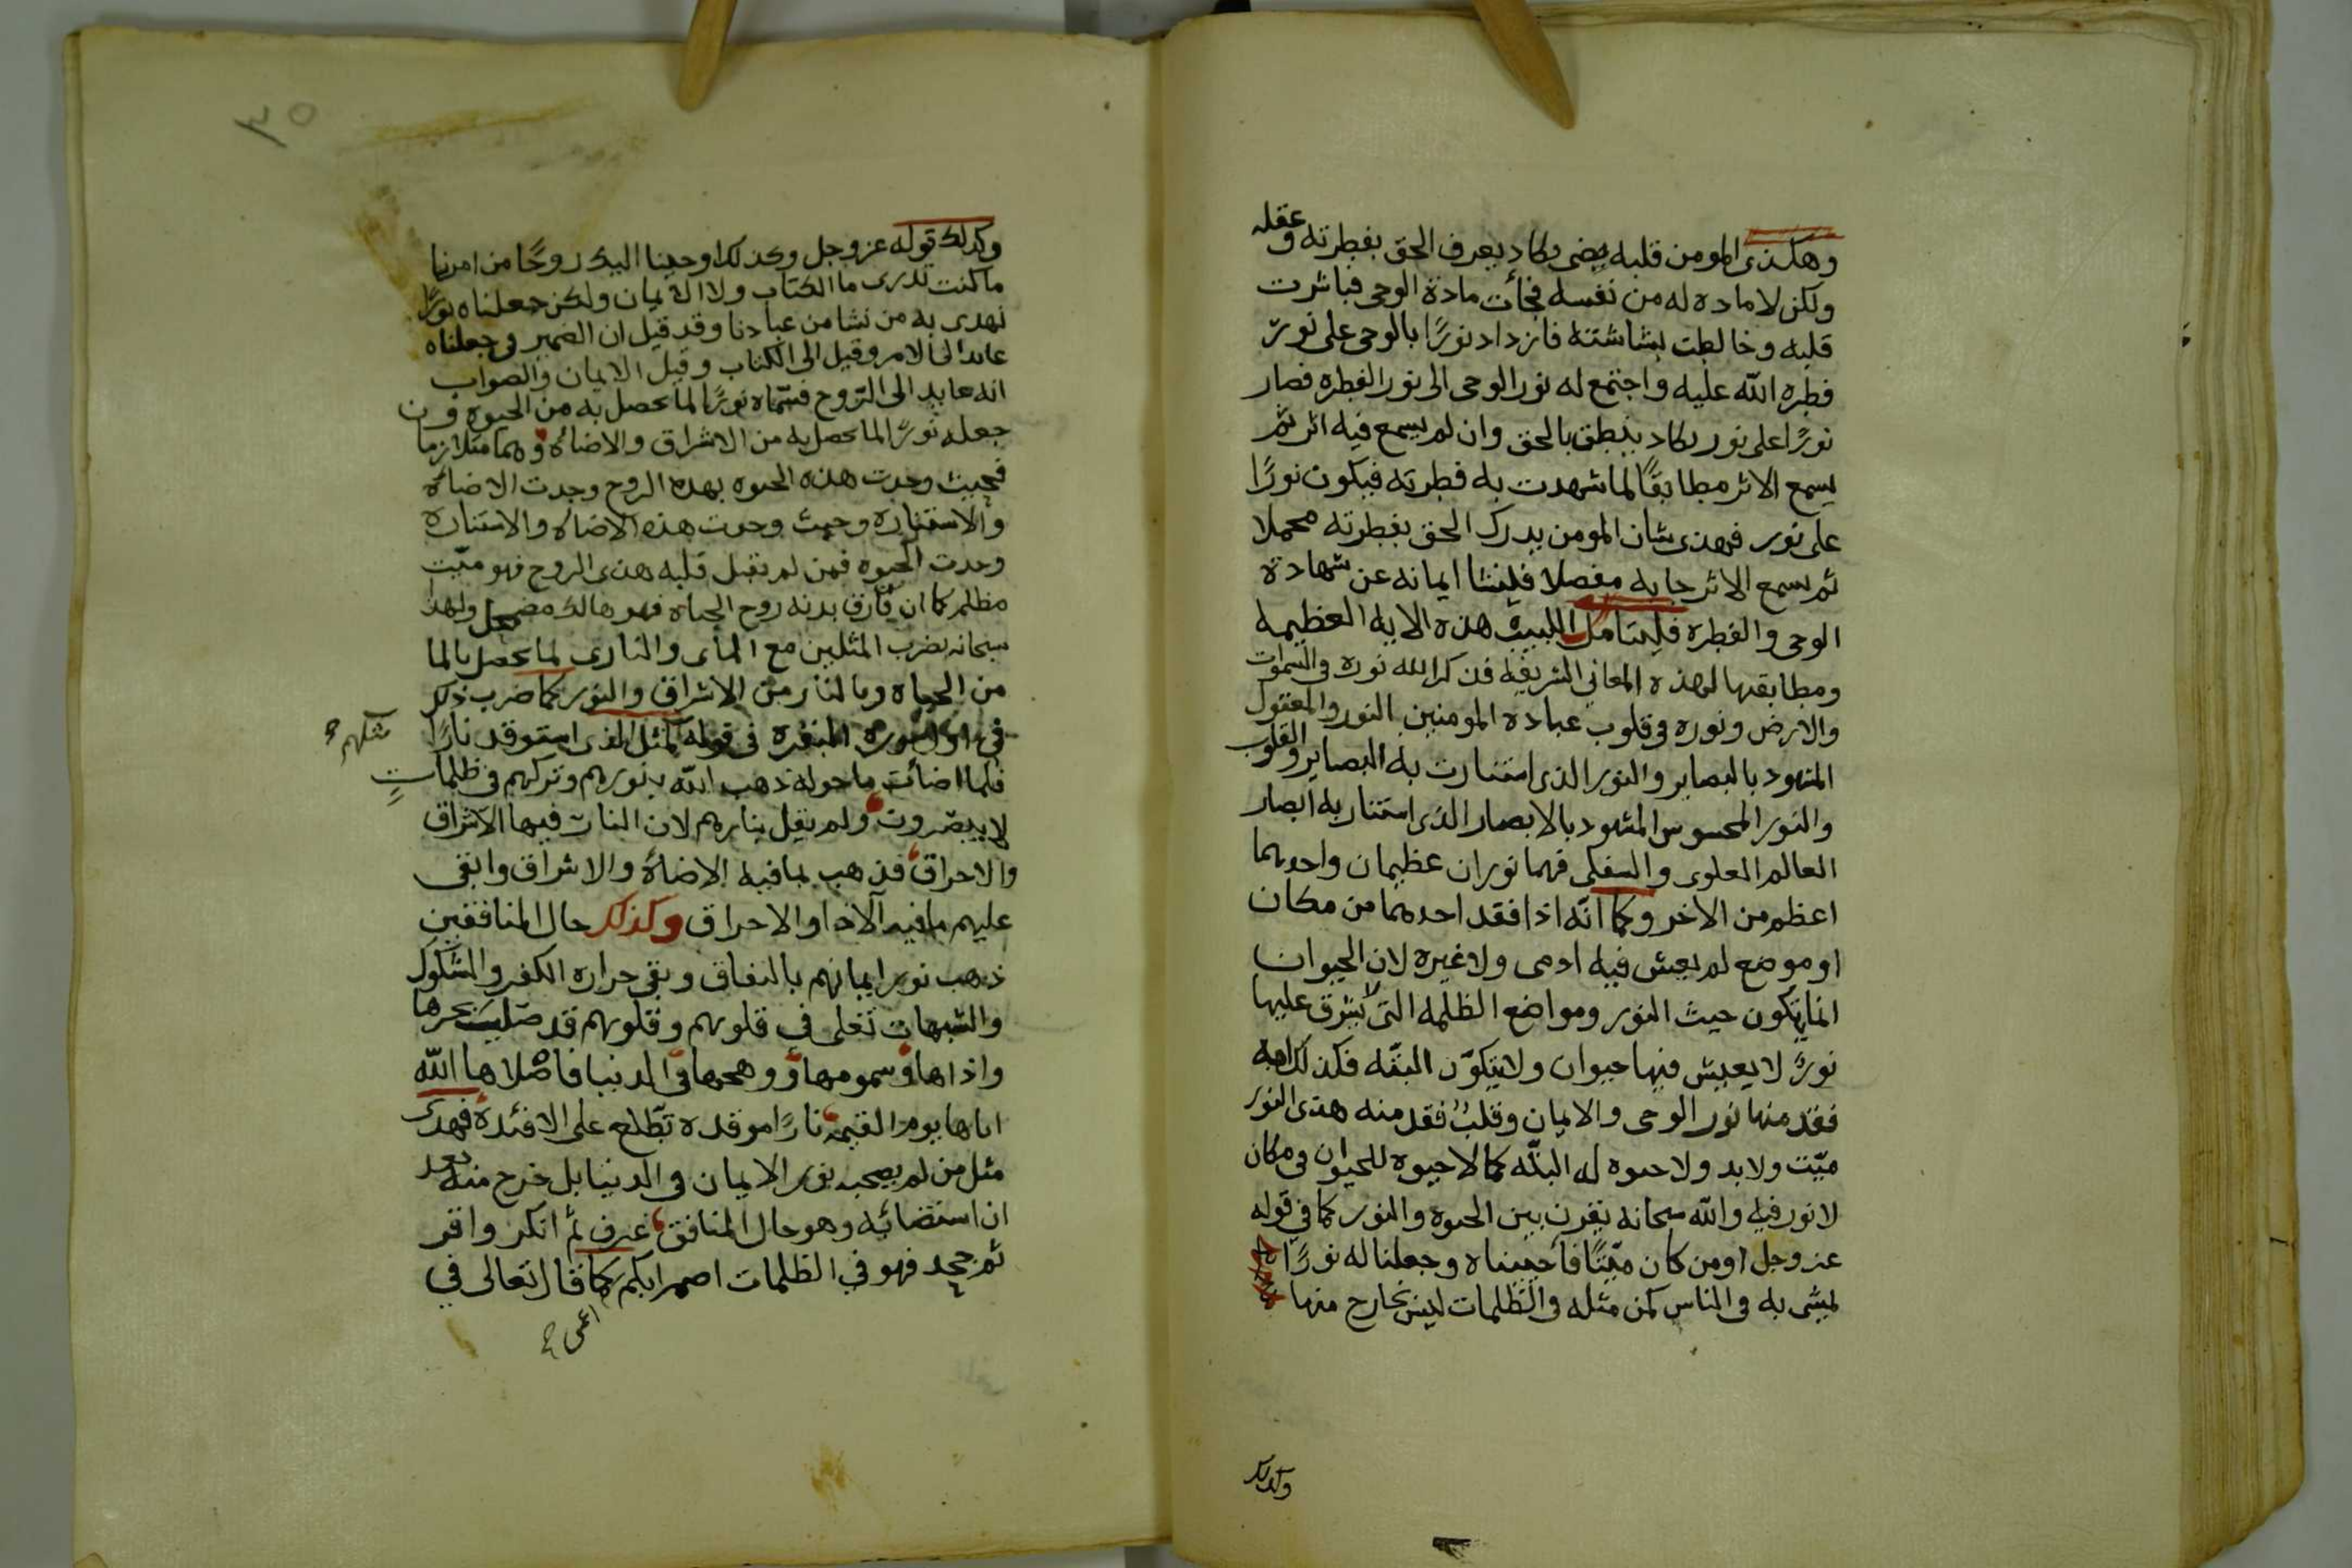 وهكذى المومن قلبه يضى يكاد يعرف الحق بفطرته وعقله
ولكن لا ماده له من نفسه فجأت مادة الوحى فباشرت
قلبه وخالطت بشاشته فازداد نورًا بالوحى على نورّ
فطره الله عليه واجتمع له نور الوحى الى نور الفطره فصار
نورًا على نور يكاد ينطق بالحق وان لم يسمع فيه اثر ثم
يسمع الاثر مطابقًا لما شهدت به فطرته فيكون نورًا
على نور فهذى شان المومن يدرك الحق بفطرته مجملا
ثم يسمع الاثر جا به مفصلا فينشا ايمانه عن شهادة
الوحى والفطره فليتامل اللبيب هذه الايه العظيمه
ومطابقها لهذه المعاني الشريفه فذكر الله نوره في السموت
والارض ونوره في قلوب عباده المومنين النور المعقول
المشهود بالبصاير والنور الذى استنارت به البصاير والقلوب
والنور المحسوس المشهود بالابصار الذى استنار به ابصار
العالم العلوى والسفلى فهما نوران عظيمان واحدهما
اعظم من الاخر وكما انه اذا فقد احدهما من مكان
او موضع لم يعيش فيه ادمى ولا غيره لان الحيوان
انما يتكون حيث النور ومواضع الظلمه التى لا يشرق عليها
نورٌ لا يعيش فيها حيوان ولا يتكوّن البتّه فكذلك امه
فقد منها نور الوحى والايمان وقلبٌ فقد منه هذى النور
ميّت ولا بد ولا حيوه له البتّه كما لا حيوه للحيوان في مكان
لا نور فيه والله سبحانه يقرن بين الحيوه والنور كما في قوله
عز وجل اومن كان ميّتًا فأحييناه وجعلنا له نورًا
يمشى به في الناس كمن مثله في الظلمات ليس بخارج منها
وكذلك
٣٥
وكذلك قوله عز وجل وكذلك اوحينا اليك روحًا من امرنا
ما كنت تدرى ما الكتاب ولا الايمان ولكن جعلناه نورًا
نهدى به من نشا من عبادنا وقد قيل ان الضمير في جعلناه
عايد الى الامر وقيل الى الكتاب وقيل الايمان والصواب
انه عايد الى الرّوح فسمّاه نورًا لما يحصل به من الحيوه و
جعله نورًا لما يحصل به من الاشراق والاضاه وهما متلازما ن
فحيث وجدت هذه الحيوه بهذه الروح وجدت الاضاه
والاستناره وحيث وجدت هذه الاضاه والاستناره
وجدت الحيوه فمن لم تقبل قلبه هذى الروح فهو ميّت
مظلم كما ان فارق بدنه روح الحياه فهو هالك مضمحل ولهذا
سبحانه يضرب المثلين مع المأى والنارى لما يحصل بالما
من الحياه وبالنار من الاشراق والنور كما ضرب ذلك
في اول سوره البقره في قوله كمثل الذى استوقد نارًا
مثلهم
فلما اضأت ما حوله ذهب الله بنورهم وتركهم في ظلماتٍ
لا يبصرون ولم يقل بنارهم لان النار فيها الاشراق
والاحراق فذهب بما فيه الاضاة والاشراق وابقى
عليهم ما فيه الاذا والاحراق وكذلك حال المنافقين
ذهب نور ايمانهم بالنفاق وبقى حراره الكفر والشكوك
والشبهات تغلى في قلوبهم وقلوبهم قد صليت بحرها
واذاها وسمومها ووهجها في الدنيا فاصلاها الله
اياها يوم القيمه نارًا موقده تطّلع على الافئدة فهذى
مثل من لم يصحبه نور الايمان في الدنيا بل خرج منه بعد
ان استضا به وهو حال المنافق عرف ثم انكر واقر
ثم جحد فهو في الظلمات اصم ابكم كما قال تعالى في
اعمى